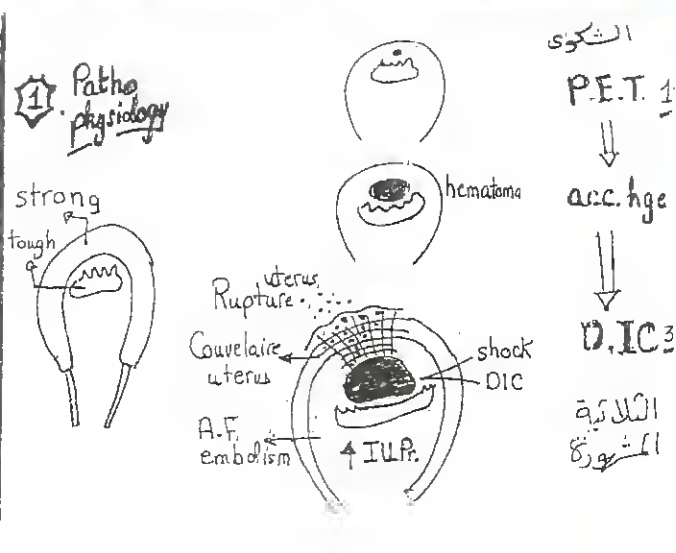 1. Patho
physiology
strong
tough
hematoma
Rupture uterus
Couvelaire
uterus
shock
DIC
A.F.
embolism
↑ I.U.Pr.
P.E.T. 1
⇓
acc. hge
⇓
D.IC 3
الثلاثية
المشهورة